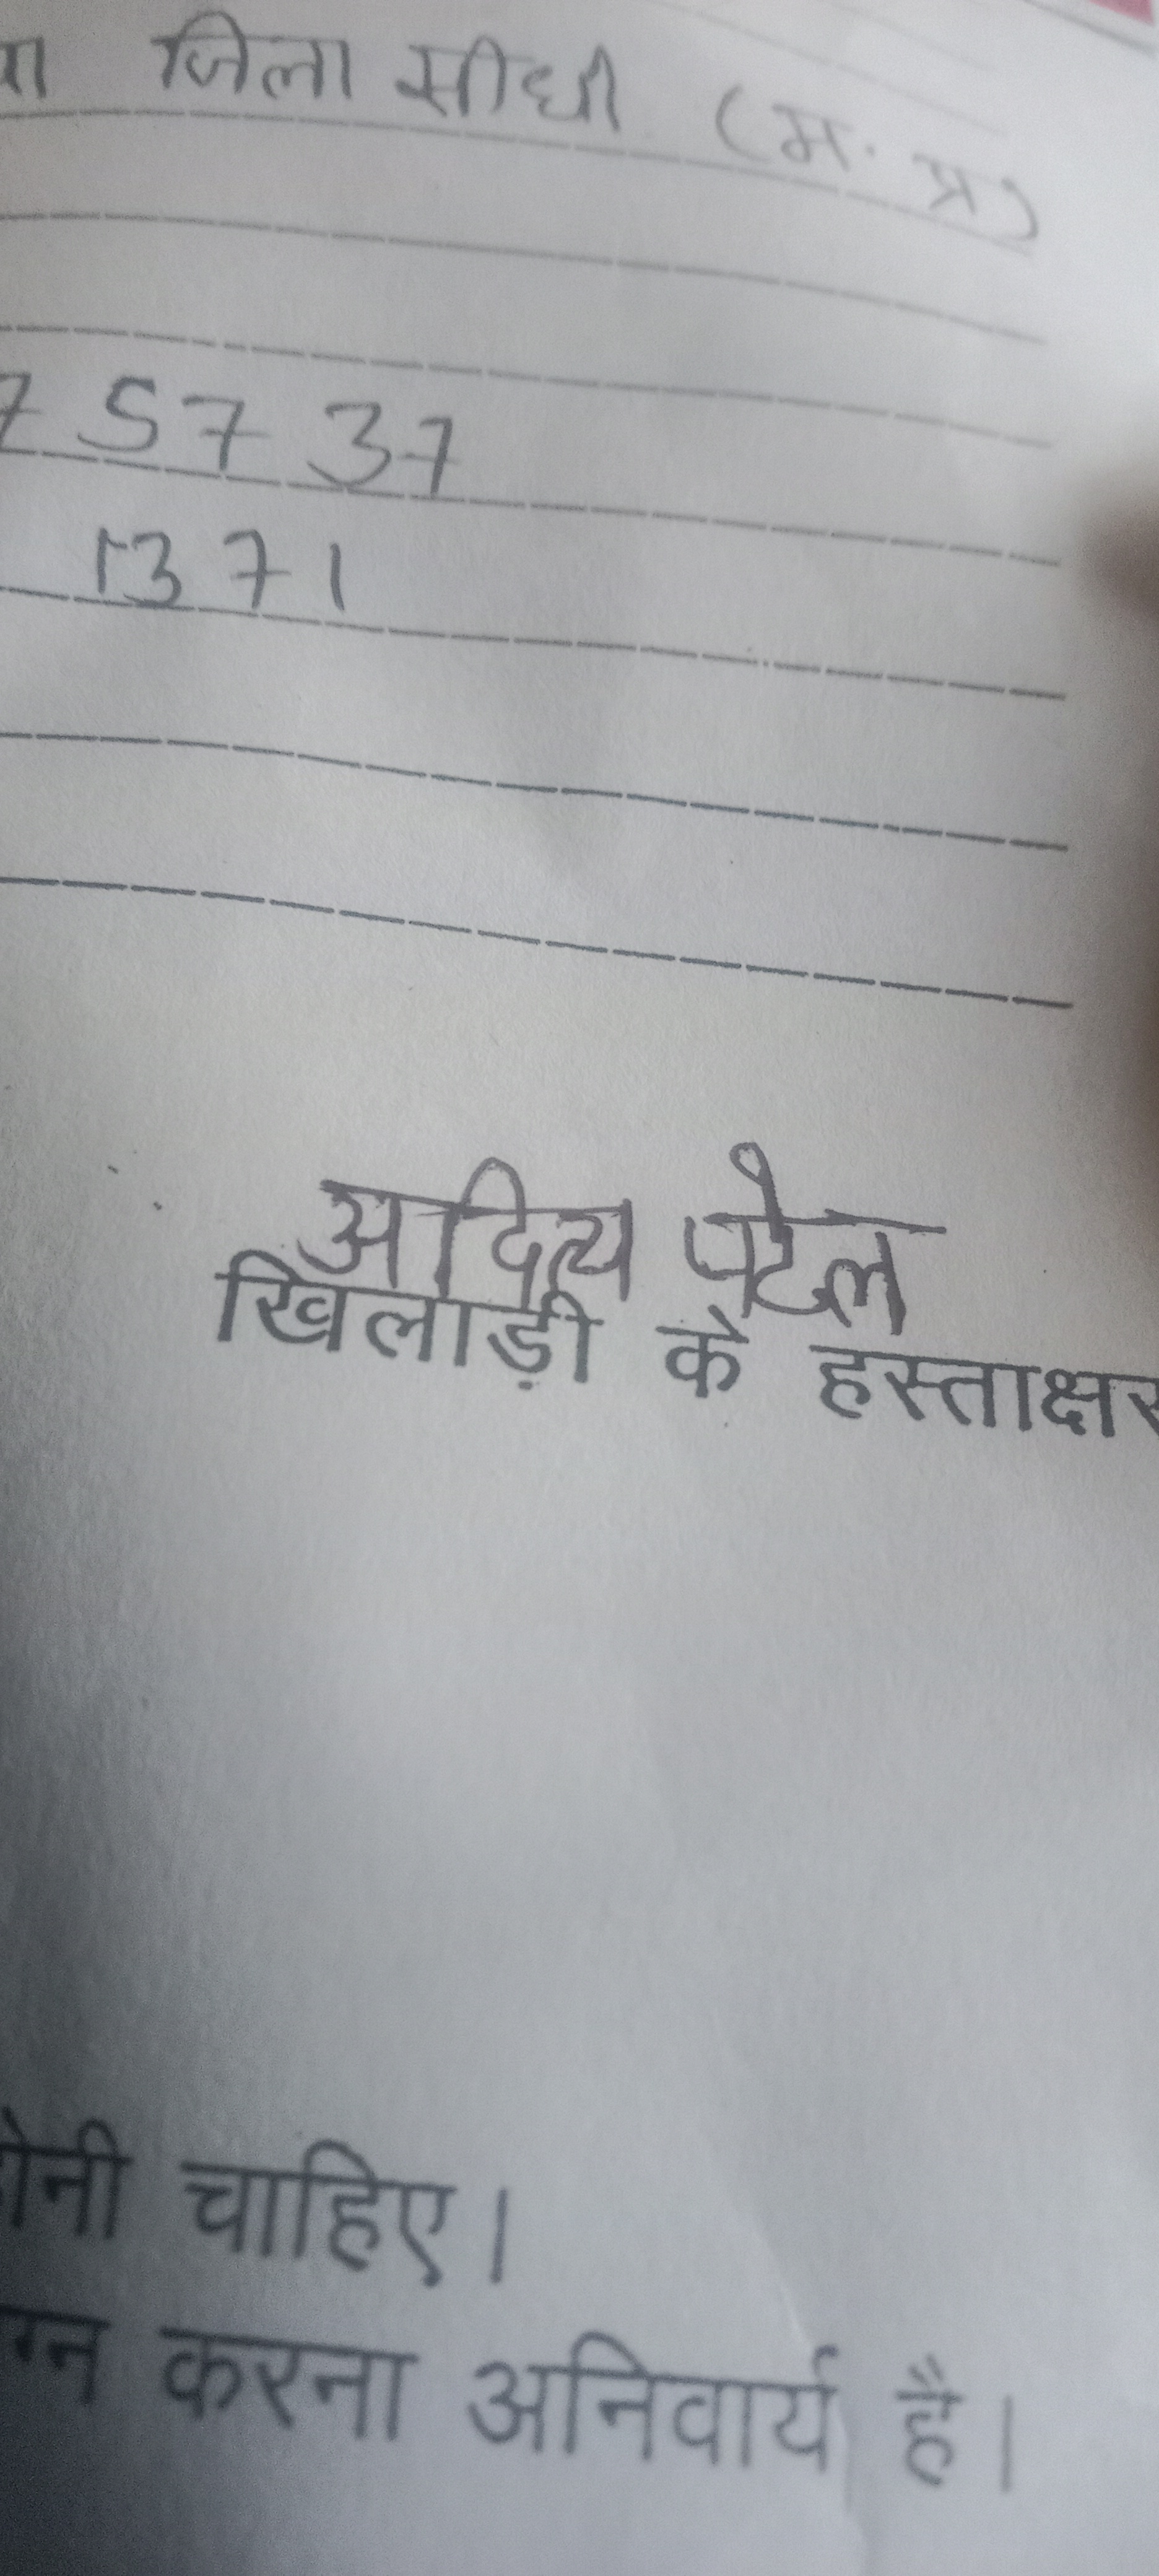 जिला सीधी (म. प्र)
7 57 37
1371
आदित्य पटेल
खिलाड़ी के हस्ताक्षर
चाहिए।
करना अनिवार्य है।